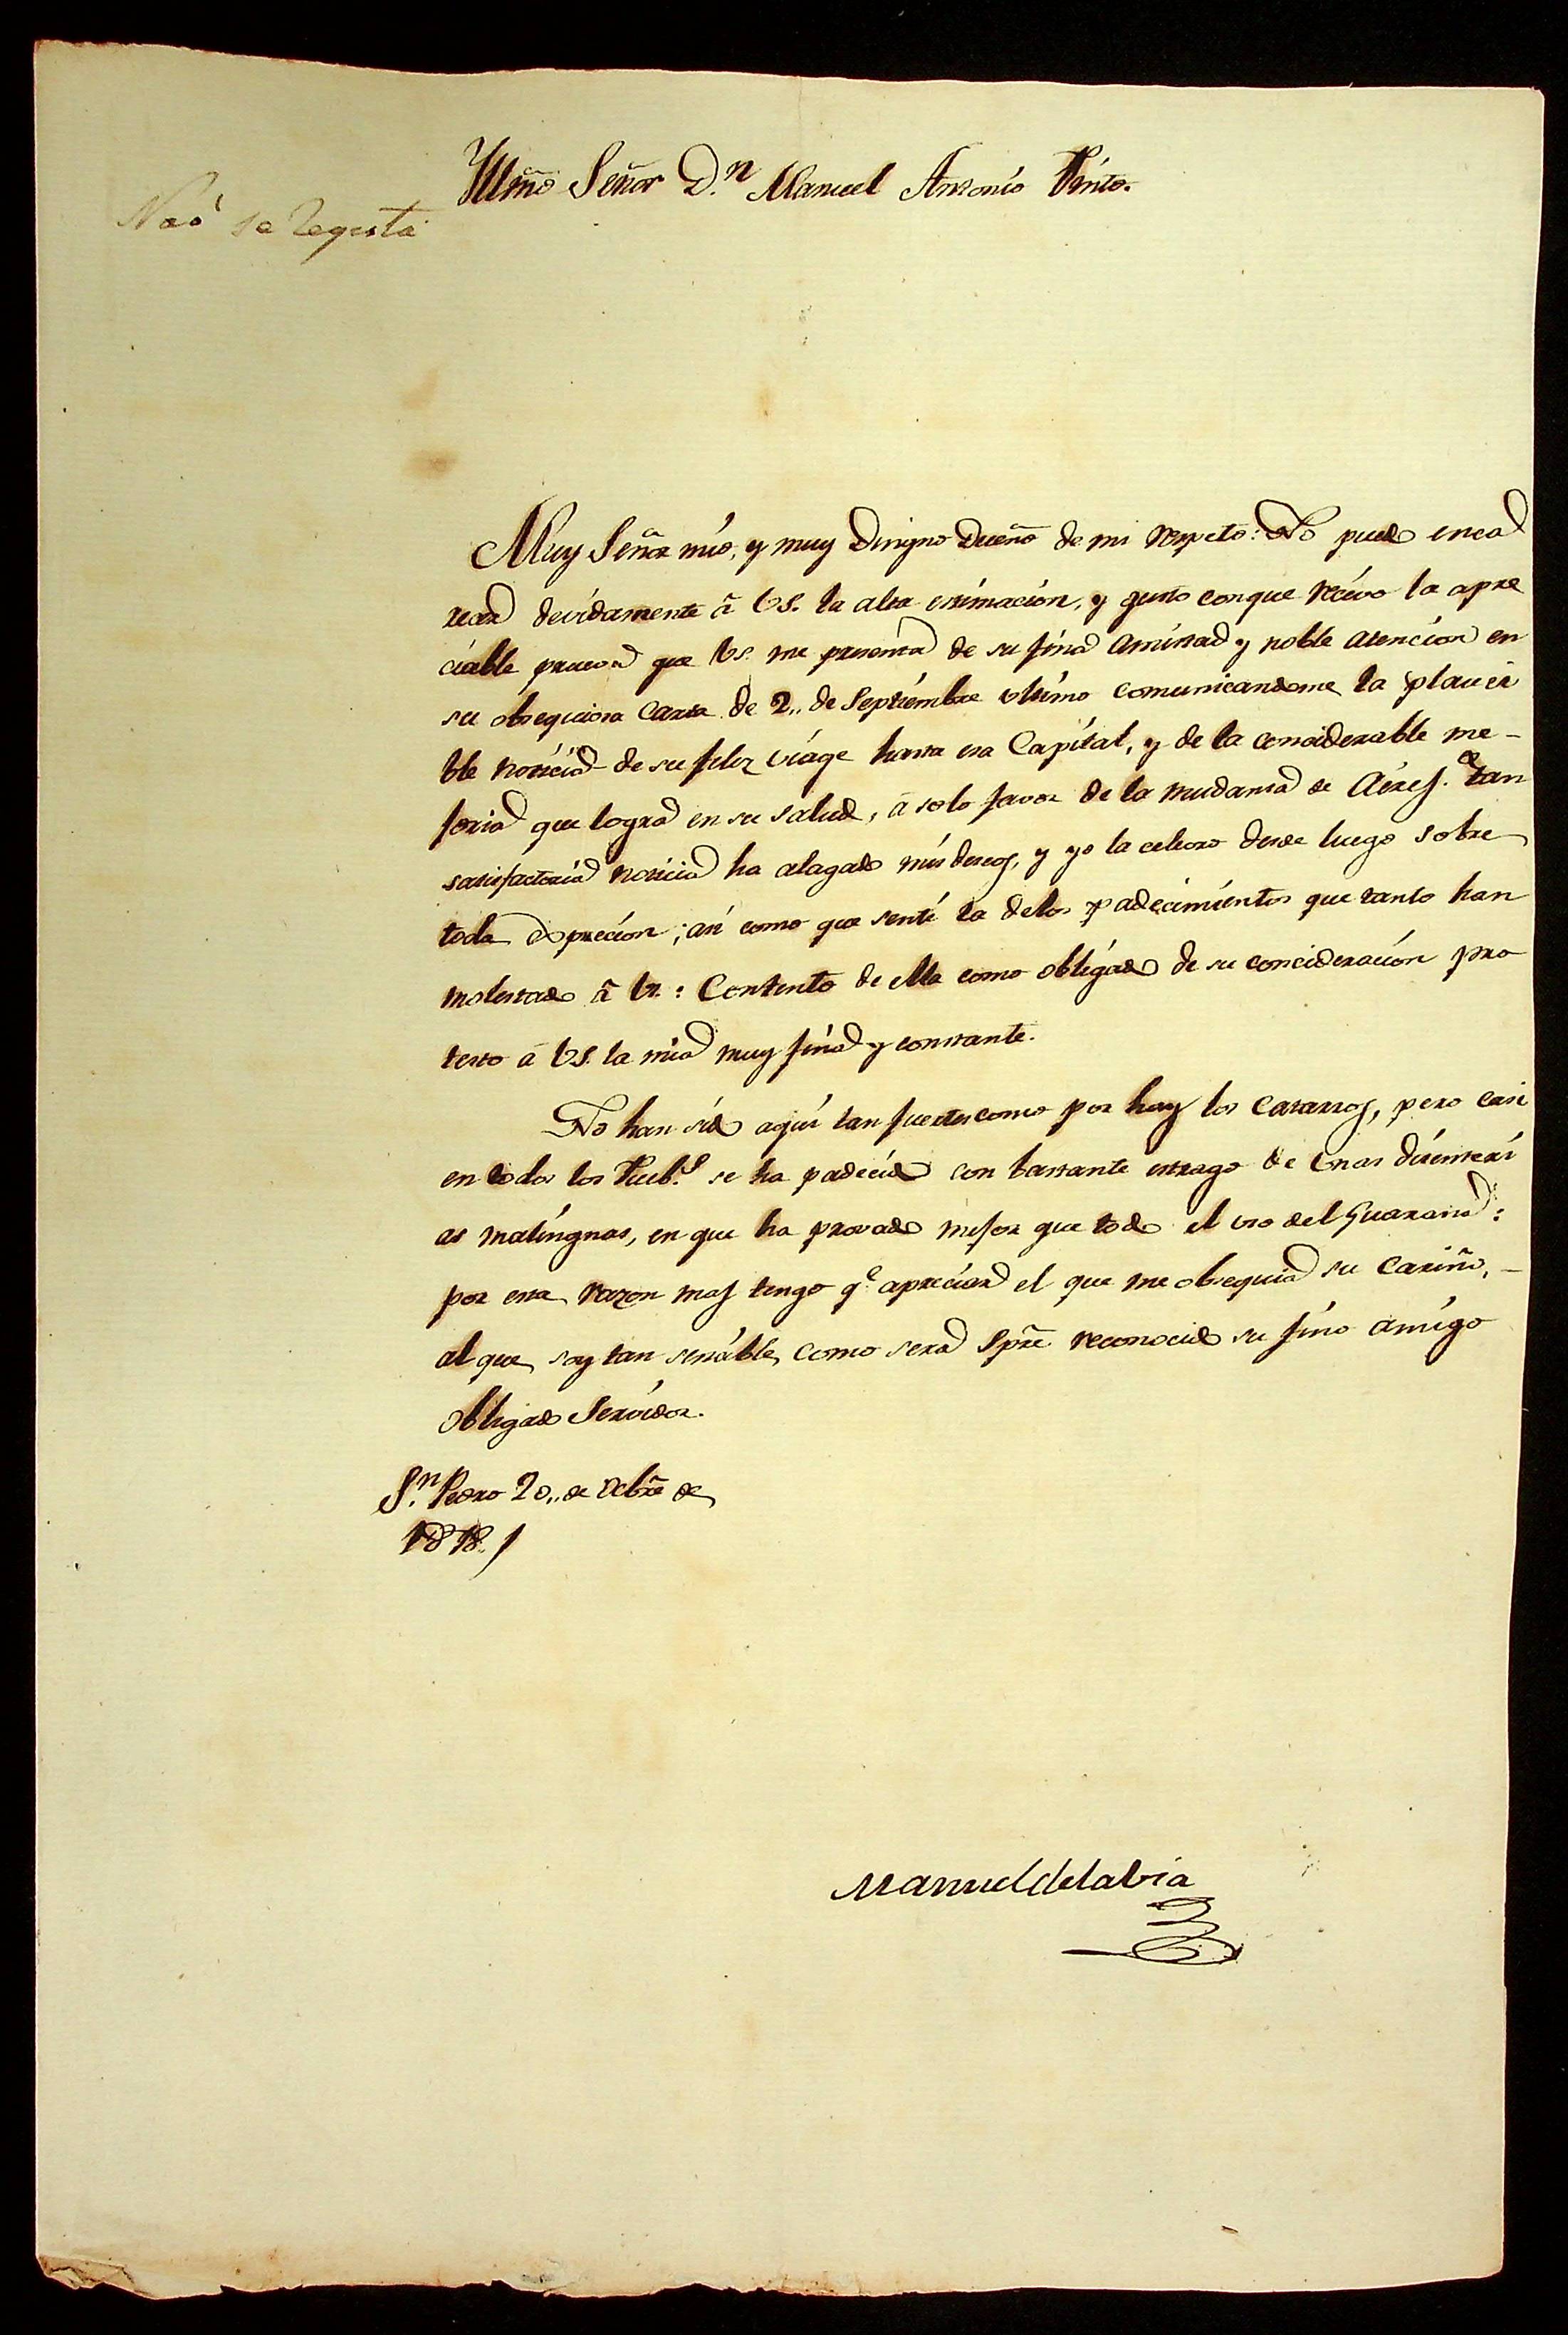 Yllmo Señor D.n Manuel Antonio Pinto.
Naõ se Regista
Muy Señor mio, y muy Dinigno Dueño de mi respeto: No puedo enca
recer devidamente â VS. la alta estimacion, y gusto conque recivo la apre
ciable prueva que VS. me presenta de su fina amistad y noble atencion en
su obsequiosa Carta de 2,, de Septiembre ultimo comunicandome la plauci
ble noticia de su feliz viage hasta esa Capital, y de la considerable me-
joria que logra en su salud, â solo favor de la mudansa de Aires. Tan
satisfactoria noticia ha alagado mis deseos, y yo la celebro desde luego sobre
toda exprecion; asi como que senti la de los padecimientos que tanto han
molestado â VS.: Contento de ella como obligado de su concideracion pro
texto â VS. la mia muy fina y constante.
No han sido aqui tan fuertes como por hay los catarros, pero casi
en todos los Pueb.s se ha padecido con bastante estrago de unas disenteri
as malingnas, en que ha provado mejor que todo el uso del Guaraná:
por esta razon mas tengo q.e apreciar el que me obsequia su Cariño, -
al que soy tan sensible, como sera Spre reconocido su fino amigo
obligado Servidor.
S.n Pedro 20,, de Octbre de
1818./
Manuel de la Via